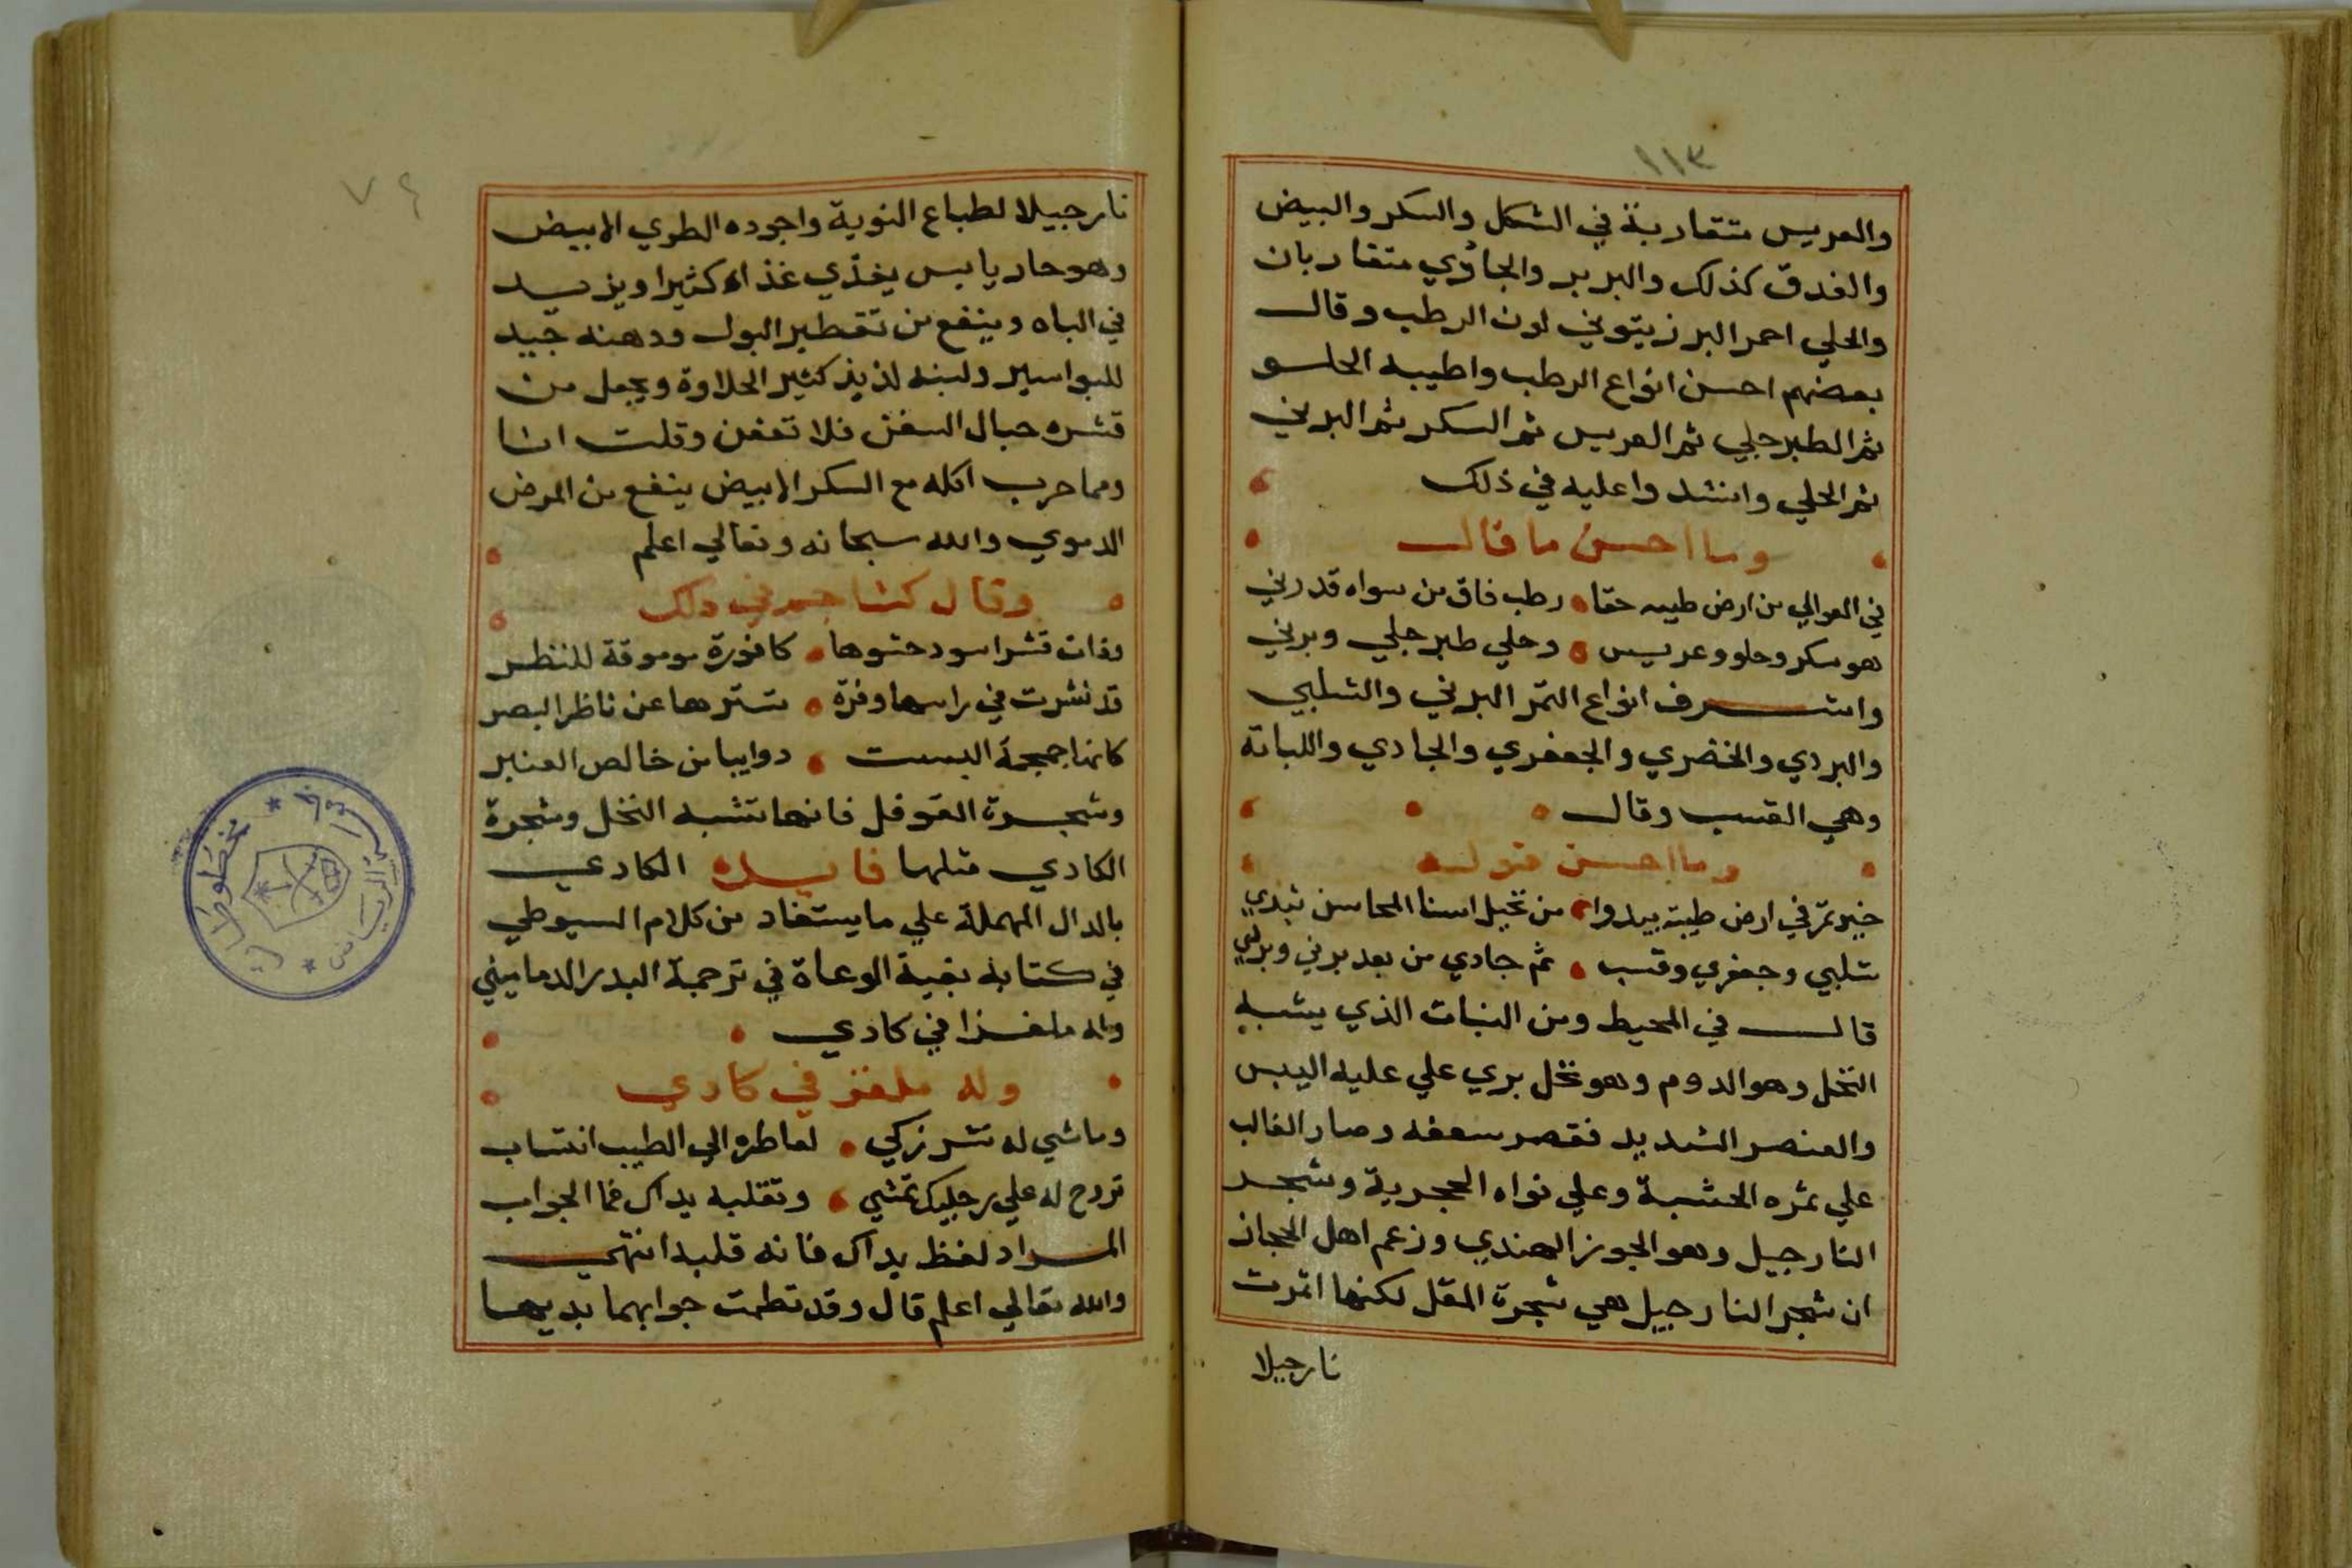 ١١٣
والعريس متقاربة في الشكل والسكر والبيض
والغدق كذلك والبربر والجاوي متقاربان
والحلي احمر البر زيتوني لون الرطب وقال
بعضهم احسن انواع الرطب واطيبه الحلو
ثم الطبرجلي ثم العريس ثم السكر ثم البرني
ثم الحلي وانشدوا عليه في ذلك
وما احسن ما قال
في العوالي من ارض طيبه حقا رطب فاق من سواه قدرني
هو سكر وحلو وعريس وحلي طبرجلي وبرني
واشرف انواع التمر البرني والشلبي
والبردي والخضري والجعفري والجادي واللبانة
وهي القسب وقال
وما احسن قوله
خير تمر في ارض طيبة يبدوا من نخيل اسنا المحاسن تبدي
شلبي وجعفري وقسب ثم جادي من بعد برني وبردي
قال في المحيط ومن النبات الذي يشبه
النخل وهو الدوم وهو نخل بري علي عليه اليبس
والعنصر الشديد فقصر سعفه وصار الغالب
علي ثمره الخشبة وعلي نواه الحجرية وشجر
النارجيل وهو الجوز الهندي وزعم اهل الحجاز
ان شجر النارجيل هي شجرة المقل لكنها اثمرت
نارجيلا
٧٤
نارجيلا لطباع النوية واجوده الطري الابيض
وهو حار يابس يغذي غذاء كثيرا ويزيد
في الباه وينفع من تقطير البول ودهنه جيد
للبواسير ولبنه لذيذ كثير الحلاوة ويجعل من
قشره حبال السفن فلا تعفن وقلت انا
ومما جرب اكله مع السكر الابيض ينفع من المرض
الدموي والله سبحانه وتعالي اعلم
وقال كشاجم في ذلك
وذات قشر اسود حشوها كافورة موموقة للنظر
قد نشرت في راسها وفرة تسترها عن ناظر البصر
كانها جمجمة البست ذوايبا من خالص العنبر
وشجرة الفوفل فانها تشبه النخل وشجرة
الكادي مثلها فايدة الكادي
بالدال المهملة علي ما يستفاد من كلام السيوطي
في كتابه بغية الوعاة في ترجمة البدر الدماميني
وله ملغزا في كادي
وله ملغز في كادي
وما شي له نشر زكي لعاطره الي الطيب انتساب
تروح له علي رجليك تمشي وتقلبه يداك فما الجواب
المراد لفظ يداك فانه قلبه انتهي
والله تعالي اعلم قال وقد نظمت جوابهما بديها